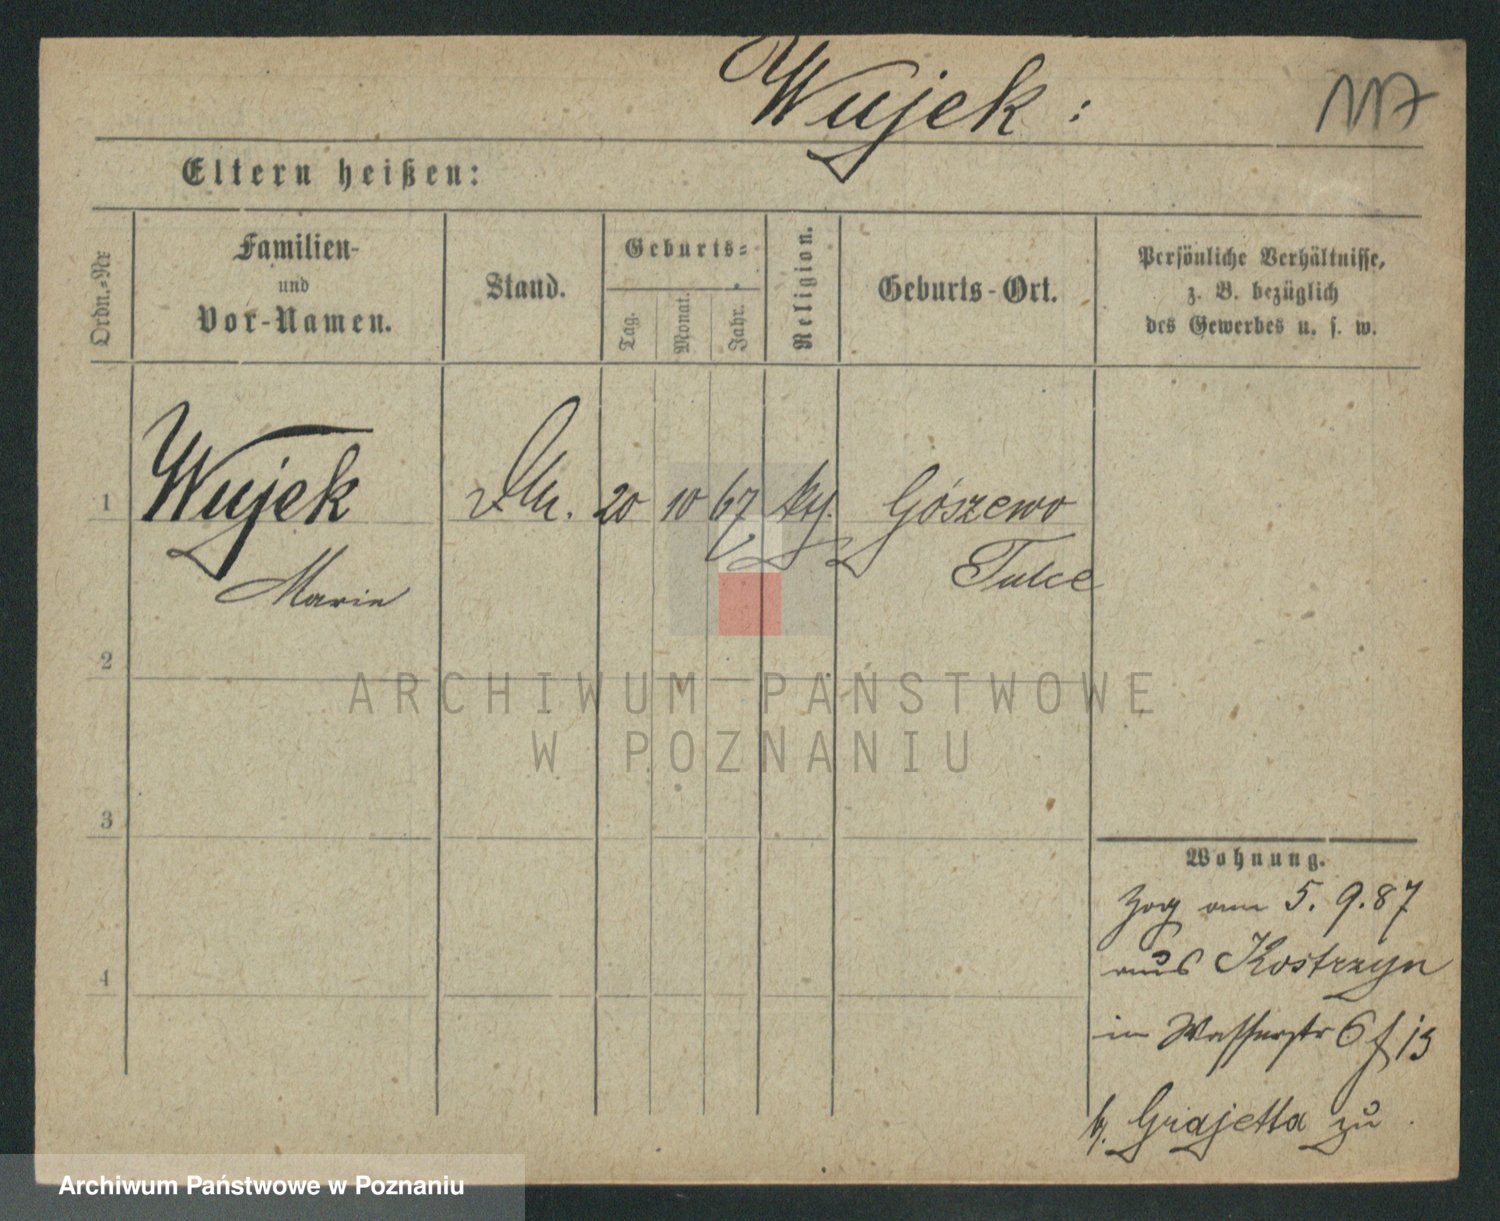 Wujek:
117
Eltern heißen:
Ordn.-Nr
Familien-
und
Vor-Namen.
Stand.
Geburts-
Tag.
Monat.
Jahr.
Religion.
Geburts-Ort.
Persönliche Verhältnisse,
z. B. bezüglich
des Gewerbes u. s. w.
1
Wujek
20
10
67
Gószewo
Marie
Tulce
2
ARCHIWUM PAŃSTWOWE
W POZNANIU
3
Wohnung.
Zog am 5. 9. 87
4
aus Kostrzyn
in Wasserstr 6
b. Grajetta zu
Archiwum Państwowe w Poznaniu